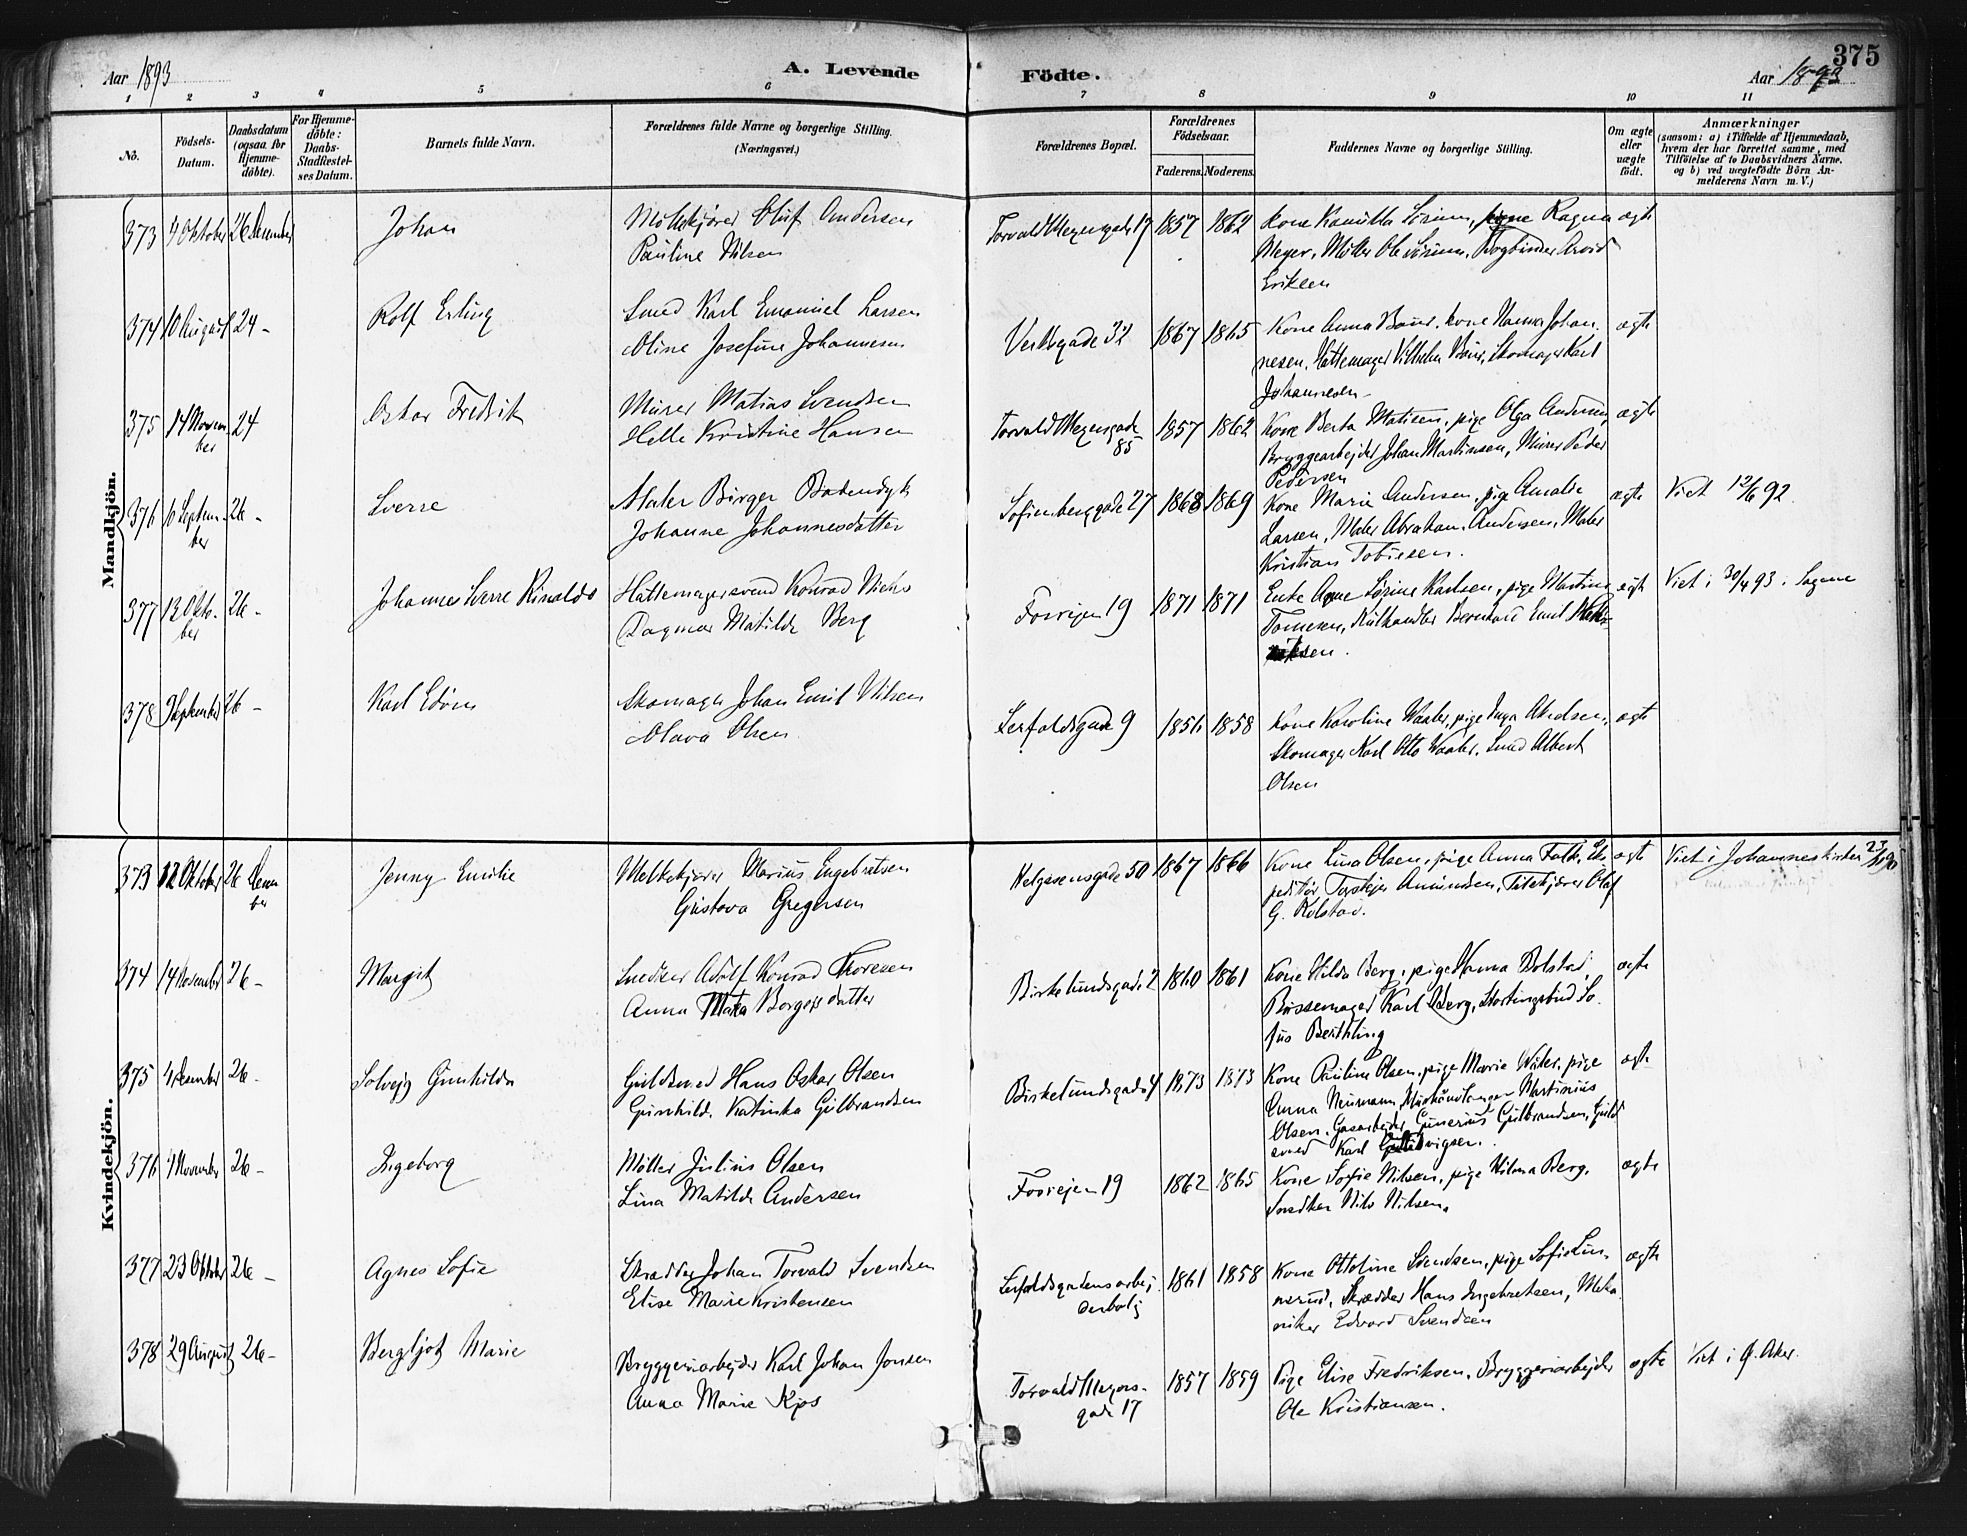 375
Aar 1893 A. Levende Födte. Aar 1893
1 2 3 4 5 6 7 8 9 10 11
No.
Födsels-Datum.
Daabsdatum (ogsaa for Hjemme-döbte).
For Hjemme-döbte: Daabs-Stadfæstel-ses Datum.
Barnets fulde Navn.
Forældrenes fulde Navne og borgerlige Stilling.
(Næringsvei.)
Forældrenes Bopæl.
Forældrenes Födselsaar.
Faderens. Moderens.
Faddernes Navne og borgerlige Stilling.
Om ægte eller uægte födt.
Anmærkninger
(saasom: a) i Tilfælde af Hjemmedaab,
hvem der har forrettet samme, med
Tilföielse af to Daabsvidners Navne.
og b) ved uægtefödte Börn An-
melderens Navn m. V.)
Mandkjön.
373 4 Oktober 26 Desember Johan
Mølkjører Oluf Andersen
Pauline Nilsen
Torvald Meyersgade 17 1857 1862
Kone Kamilla Sørum, pige Ragna
Meyer, Møller Ole Sørum, Bogbinder Arvid
Eriksen
ægte
374 10 August 24 - Rolf Erling
Smed Karl Emanuel Larsen
Oline Josefine Johannesen
Verksgade 32 1867 1865
Kone Anna Baur, kone Hanna Johan-
nesen, Hattemager Vilhelm Baur, Skomager Karl
Johannesen
ægte
375 14 Novem-
ber 24 Oskar Fredrik
Murer Matias Svendsen
Helle Kristine Hansen
Torvald Meyersgade
85 1857 1862
Kone Berta Matisen, pige Olga Andersen,
Bryggearbejder Johan Martinsen, Murer Peder
Pedersen
ægte
376 10 Septem-
ber 26 - Sverre
Maler Birger Badendyk
Johanne Johannesdatter
Sofienberggade 27 1868 1869
Kone Marie Andersen, pige Amalie
Larsen, Maler Abraham Andersen, Maler
Kristian Tobiesen.
ægte Viet 12/6 92.
377 12 Okto-
ber 26 - Johannes Sverre Rinaldo
Hattemagersvend Konrad
Dagmar Matilde Berg
Fosvejen 19 1871 1871
Enke Agne Sørine Karlsen, pige Martine
Tomesen, Kulhandler Bernhard Emil
ægte Viet i 30/4 93. Sagene
378 September 26 - Karl Edvin
Skomager Johan Emil Nilsen
Olava Olsen
Seifaldsgade 9 1856 1858
Kone Karoline Waaler, pige Inga Akselsen,
Skomager Karl Otto Waaler, Smed Albert
Olsen
ægte
Kvindekjön.
373 12 Oktober 26 Desem
ber Jenny Emilie
Melkekjører Marius Engebretsen
Gustava Gregersen
Helgesensgade 50 1867 1866
Kone Lina Olsen, pige Anna Falk, Eks
peditør Torkjer Amundsen, Ølkjører Olaf
G. Kolstad.
ægte Viet i Johanneskirken
374 14 November 26 - Margit
Snedker Adolf Konrad Thoresen
Anna Mata Borgersdatter
Birkelundsgade 2 1860 1861
Kone Hilda Berg, pige Hanna Bolstad,
Børssemager Karl Berg, Stortingsbud So-
fus Berthling
ægte
375 4 Desember 26 - Solvejg Gunhilda
Guldsmed Hans Oskar Olsen
Gunhild Katinka Gulbrandsen
Birkelundsgade 4 1873 1873
Kone Pauline Olsen, pige Marie Wiker, pige
Anna Neumann, Martinius
Olsen, Gasarbejder Gunerius Gulbrandsen, Guld
smed Karl
ægte
376 4 November 26 - Ingeborg
Møller Julius Olsen
Lina Matilde Andersen
Fosvejen 19 1862 1865
Kone Sofie Nilsen, pige Hilma Berg,
Snedker Nils Nilsen.
ægte
377 23 Oktober 26 - Agnes Sofie
Skrædder Johan Torvald Svendsen
Elise Marie Kristensen
Seifaldsgadens arbej
derbolig 1861 1858
Kone Ottoline Svendsen, pige Sofie Lun-
nerud, Skrædder Hans Ingebretsen, Meka
niker Edvard Svendsen
ægte
378 29 August 26 - Bergljot Marie
Bryggeriarbejder Karl Johan Jonsen
Anna Marie Kjos
Torvald Meyers-
gade 17 1857 1859
Pige Elise Fredriksen, Bryggeriarbejder
Ole Kristiansen.
ægte Viet i Ø. Aker.